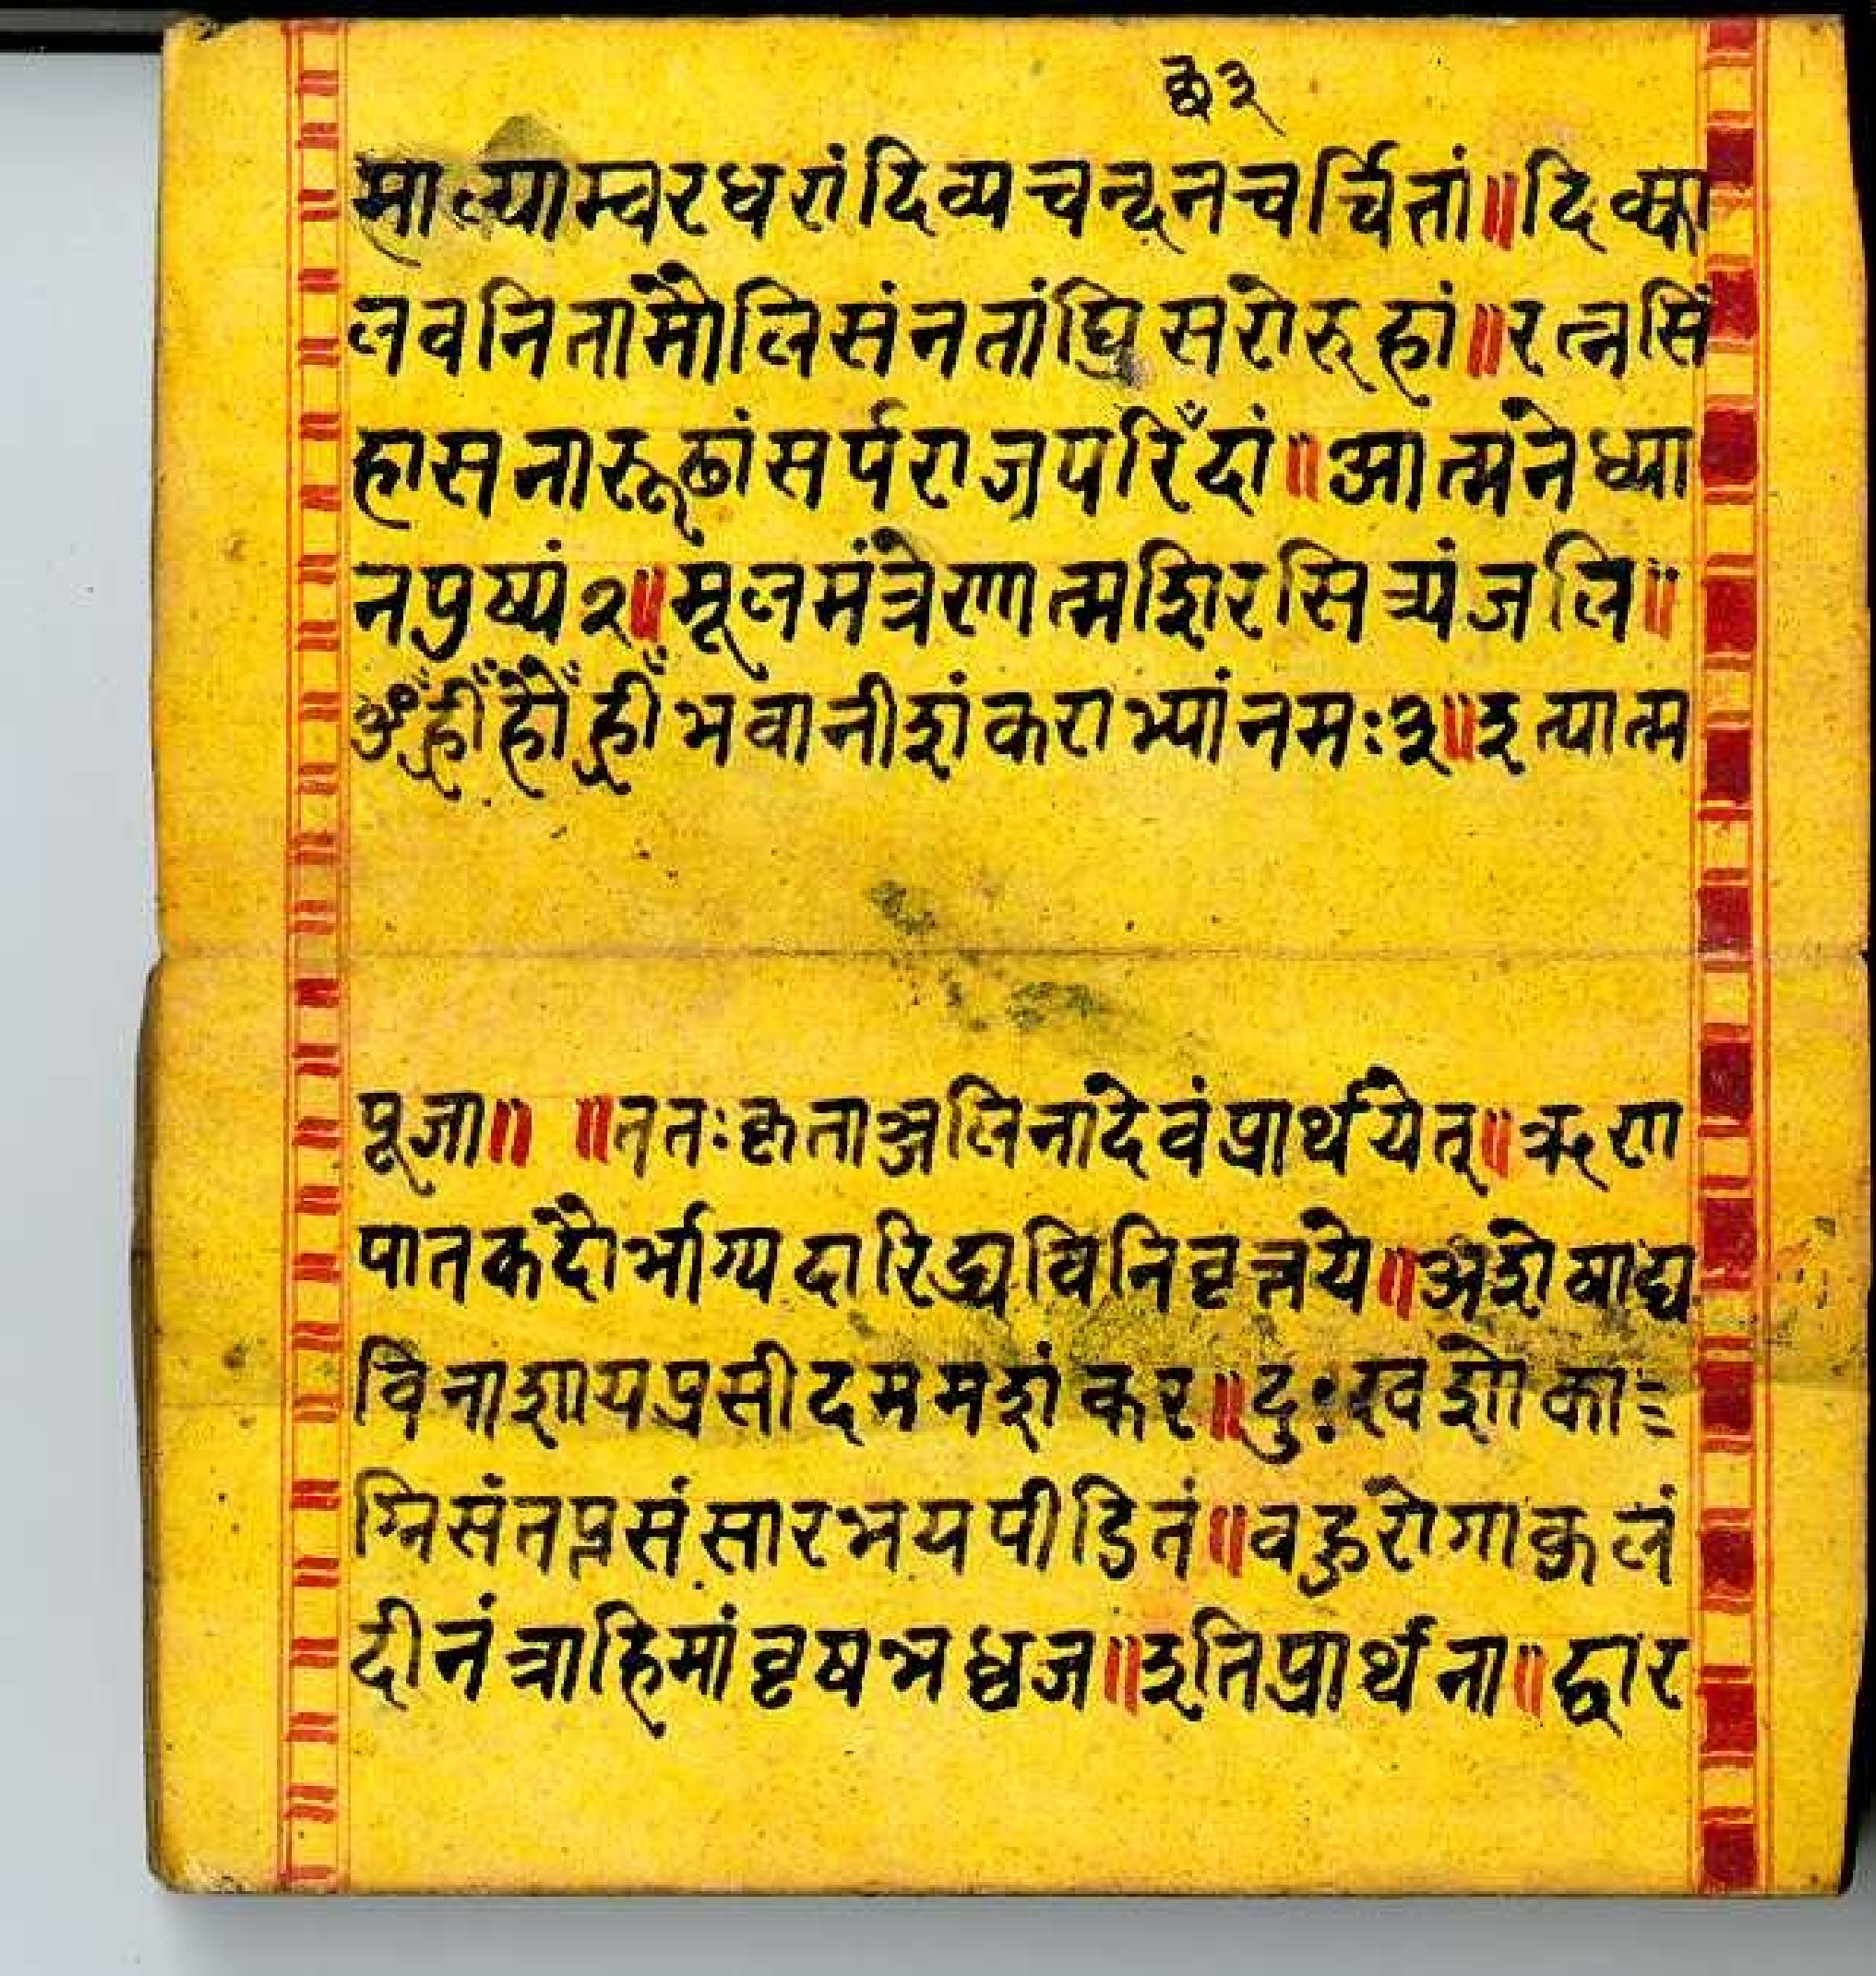 माल्याम्वरधरांदिव्यचन्दनचर्चितां॥दिक्पा
लवनितामौलिसंनतांघ्रिसरोरुहां॥रत्नसिं
हासनारूढांसर्पराजपरिँदां॥आत्मनेध्या
नपुष्पं२॥मूलमंत्रेणात्मशिरसित्र्यंजलि॥
ॐह्रीँहौँह्रीँभवानीशंकराभ्यांनमः३॥इत्यात्म
पूजा॥ ॥ततःकृताञ्जलिनादेवंप्रार्थयेत्॥ऋण
पातकदौर्भाग्यदारिद्र्यविनिवृत्तये॥अशेषाघ
विनाशायप्रसीदममशंकर॥दुःखशोका
ग्निसंतप्तसंसारभयपीडितं॥वहुरोगाकुलं
दीनंत्राहिमांवृषभध्वज॥इतिप्रार्थना॥द्वार